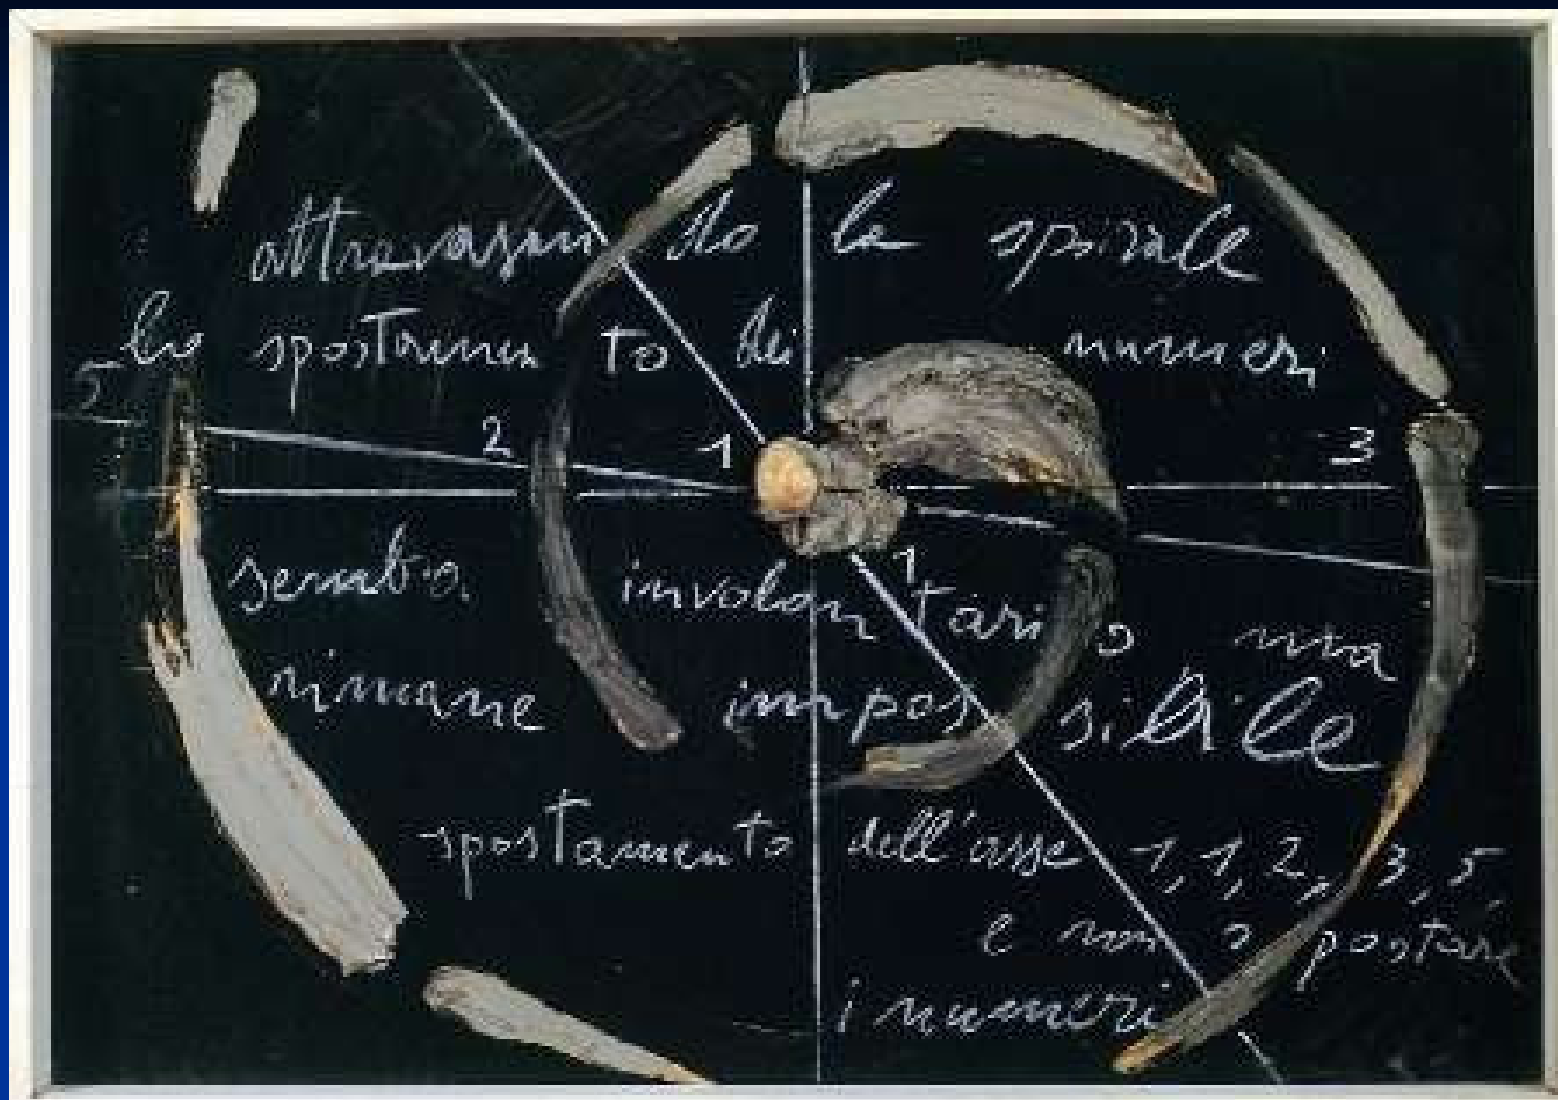 attraversando la spirale
lo spostamento dei numeri
5
2 1 3
sembra involontario ma
1
rimane impossibile
spostamento dell'asse 1, 1, 2, 3, 5,
e non spostare
i numeri